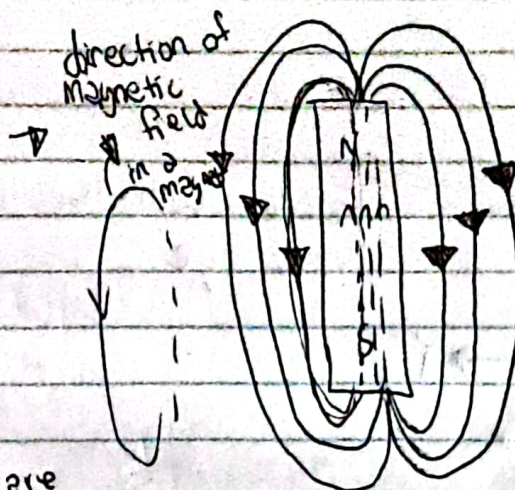 direction of
magnetic
field
in a
magnet
N
S
are